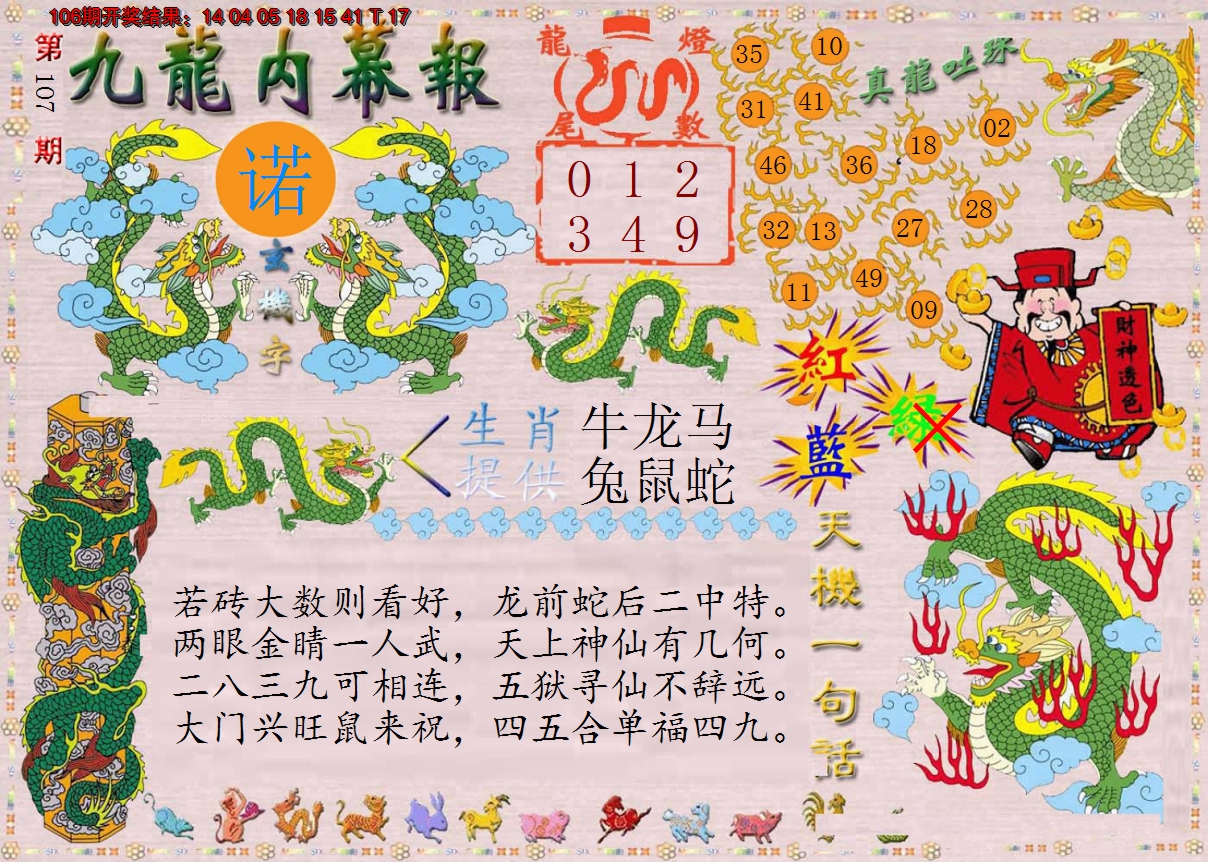 106期开奖结果：14 04 05 18 15 41 T 17
第107期
九龍内幕報
诺
玄機字
龍燈
尾數
0 1 2
3 4 9
真龍吐珠
35 10
31 41
46 36 18 02
32 13 27 28
11 49 09
財神透色
紅
綠
藍
生肖
提供
牛龙马
兔鼠蛇
天機一句话
若砖大数则看好，龙前蛇后二中特。
两眼金晴一人武，天上神仙有几何。
二八三九可相连，五狱寻仙不辞远。
大门兴旺鼠来祝，四五合单福四九。